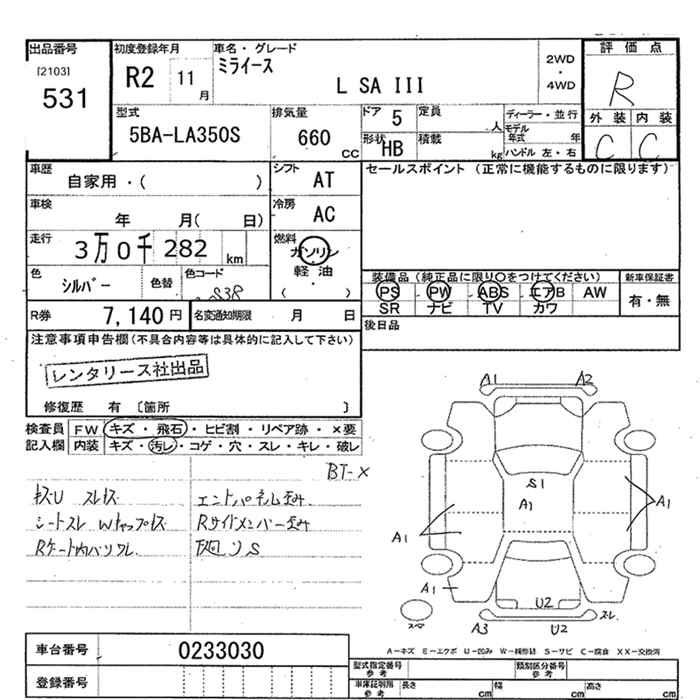 出品番号
[2103]
531
初度登録年月
R2 11 月
車名・グレード
ミライース
L SA III
2WD
・
4WD
評価点
R
外装 内装
C C
型式
5BA-LA350S
排気量
660 CC
ドア 5
定員 人
形状 HB
積載 kg
ディーラー・並行
モデル年式 年
ハンドル 左・右
車歴
自家用・( )
シフト AT
セールスポイント (正常に機能するものに限ります)
車検 年 月( 日)
冷房 AC
走行 3万0千282 km
燃料
ガソリン
軽油
( )
色 シルバー
色替
色コード S38
装備品 (純正品に限り○をつけてください)
PS PW ABS エアB AW
SR ナビ TV カワ
新車保証書
有・無
R券 7,140 円
名変通知期限 月 日
後日品
注意事項申告欄 (不具合内容等は具体的に記入して下さい)
レンタリース社出品
修復歴 有 〔箇所 〕
検査員記入欄
FW キズ・飛石・ヒビ割・リペア跡・×要
内装 キズ・汚レ・コゲ・穴・スレ・キレ・破レ
BT-×
シートスレ
エンドパネル歪み
Rサイドメンバー歪み
A1 A2
S1
A1
A1
A1
A1
U2
A3 U2
スレ
スマ
A-キズ E-エクボ U-凹み W-補修跡 S-サビ C-腐食 XX-交換済
車台番号 0233030
登録番号
型式指定番号 参考
類別区分番号 参考
車庫証明用 参考
長さ cm
幅 cm
高さ cm